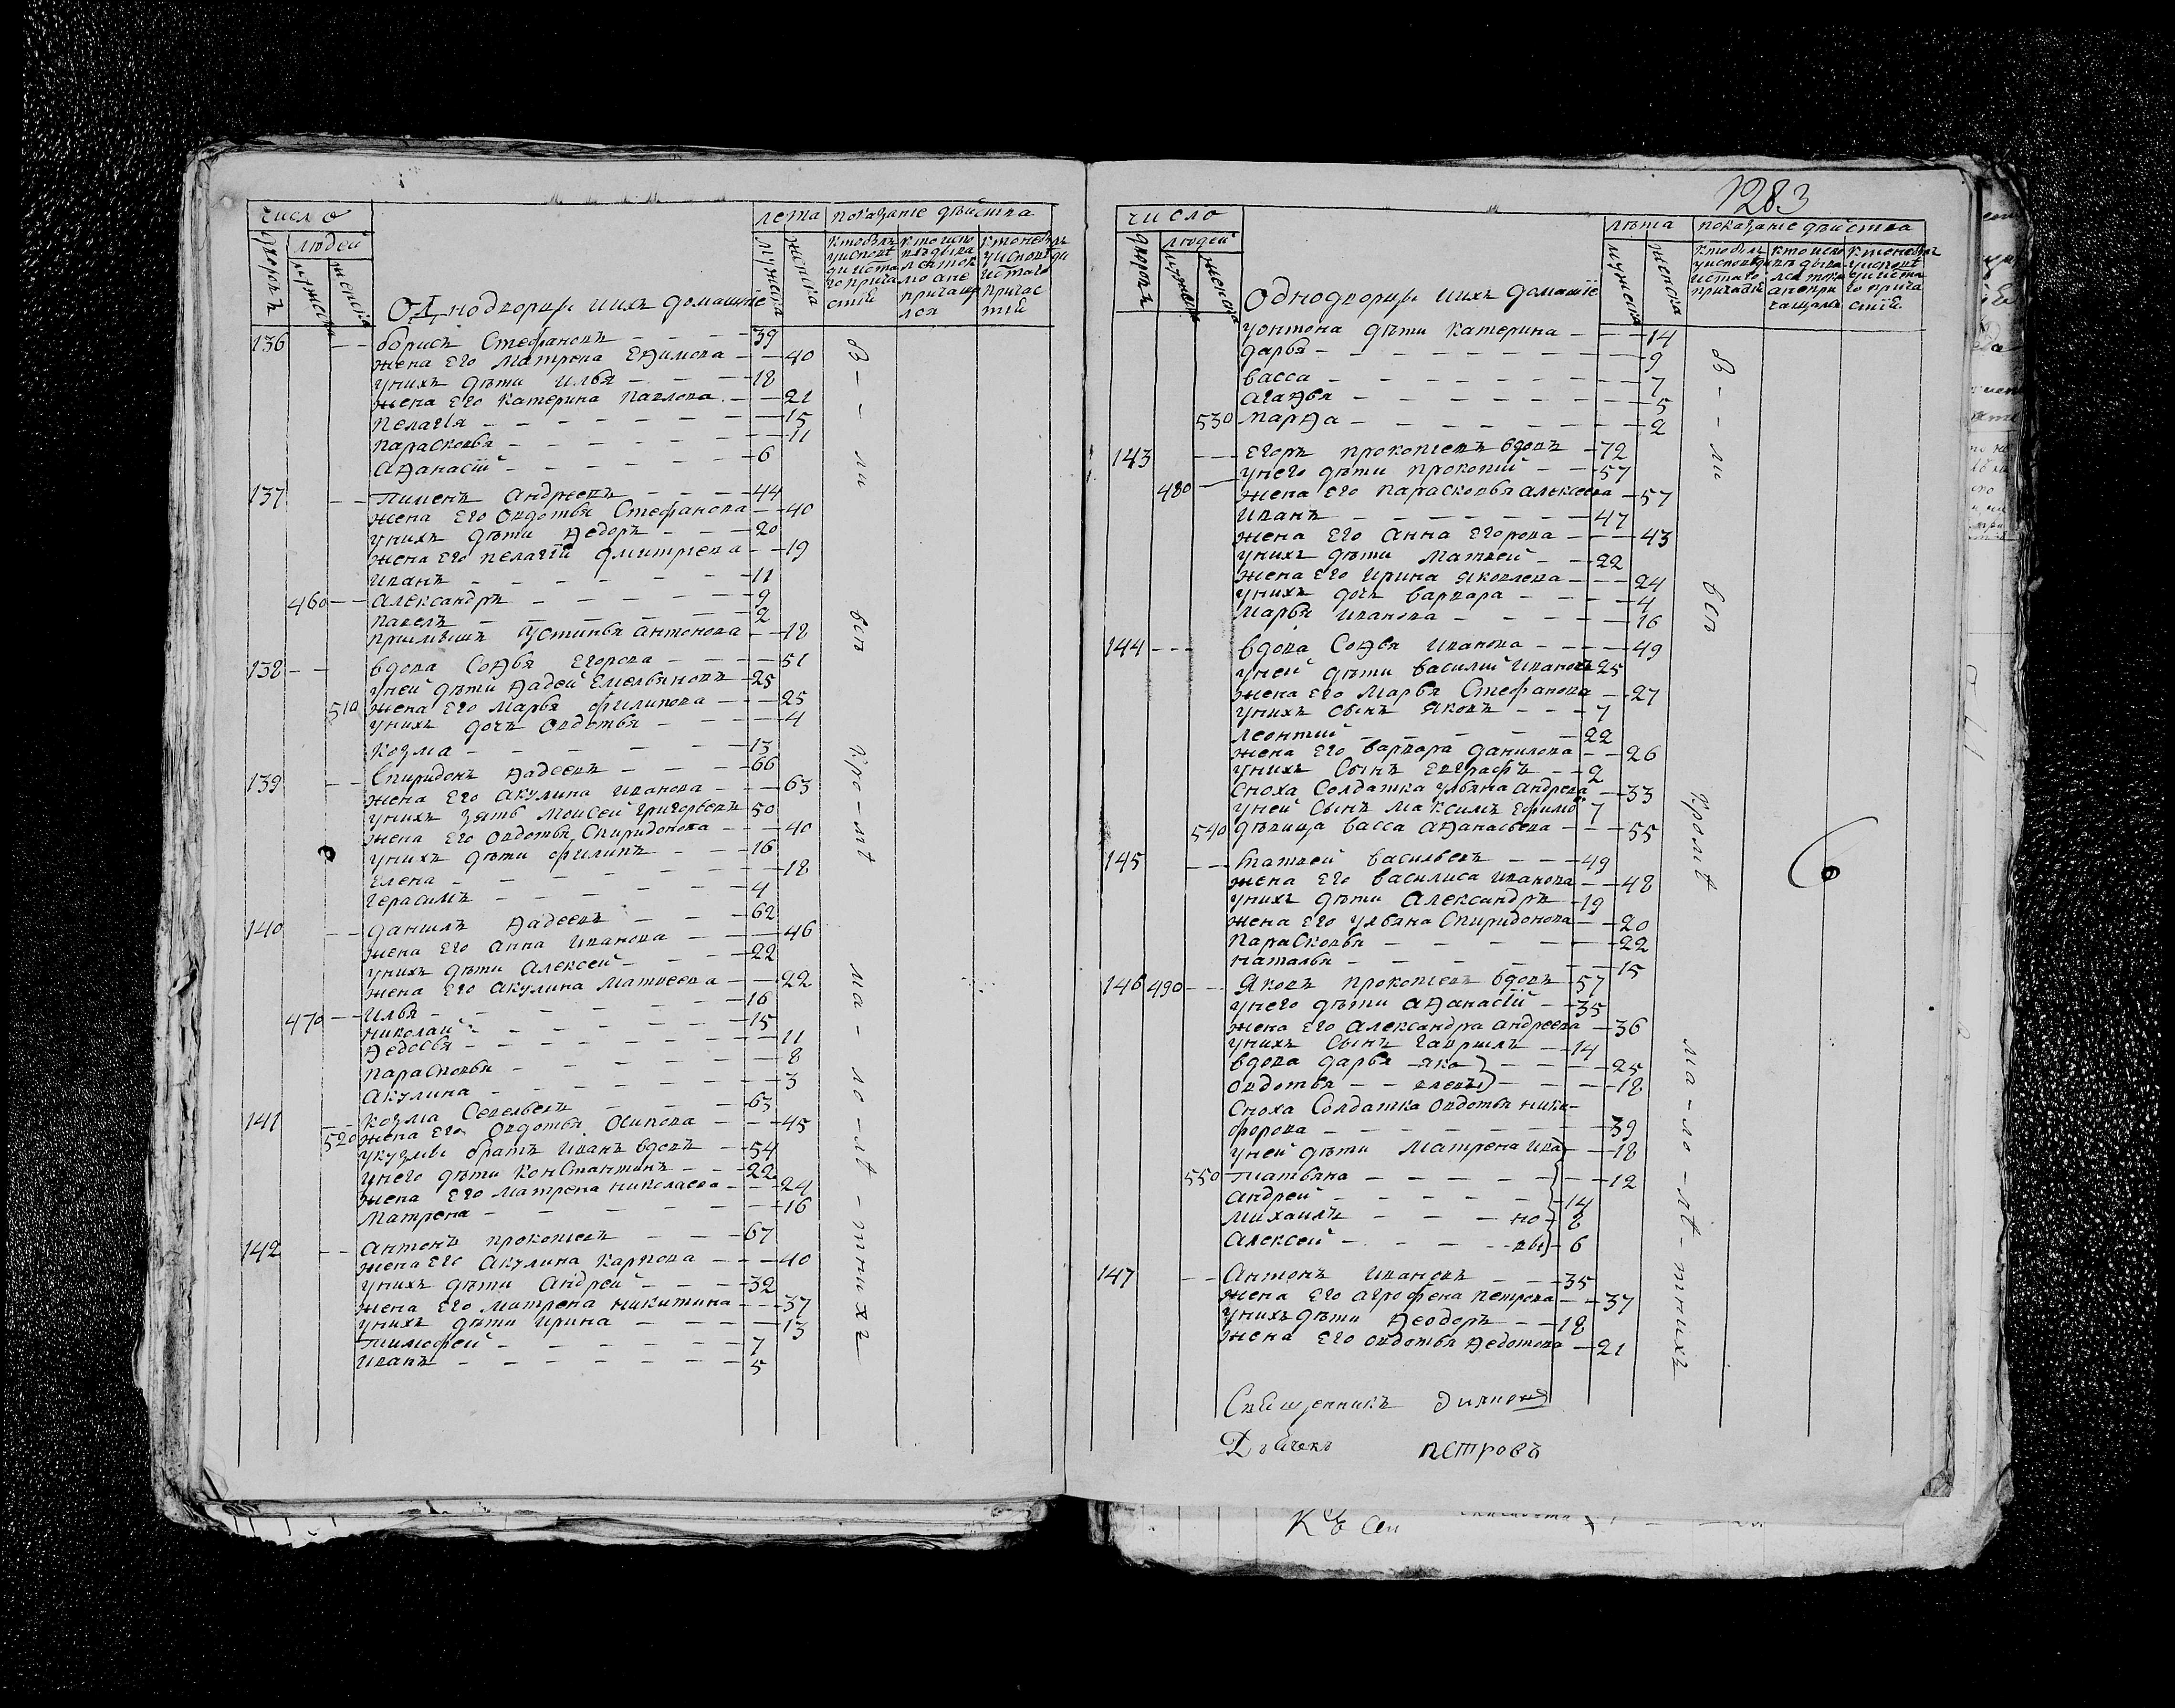 число
лета показание действа
дворовъ людей
мужеска женска
мужеска женска
Однодворцы ихъ домашние
136 -- борисъ Стефановъ - - - 39
жена Его Матрена Ефимова - - 40
унихъ дѣти илья - - - 18
жена Его Катерина Павлова - - 21
Пелагѣя - - - - - 15
Парасковья - - - - - 11
Афанасій - - - - - 6
137 -- Пименъ Андреевъ - - - 44
жена Его Овдотья Стефанова - - 40
унихъ дѣти Федоръ - - - 20
жена Его Пелагѣй дмитриева - - 19
иванъ - - - - - 11
460 -- Александръ - - - - 9
Павелъ - - - - - 2
Устинья антонова - - 18
138 -- вдова Софья Егорова - - - 51
уней дѣти Фадей Емельяновъ - 25
510 жена Его Марья филипова - - - 25
унихъ дочь Овдотья - - - - 4
Козма - - - - - 13
139 -- Спиридонъ Фадеевъ - - - 66
жена Его Акулина иванова - - - 63
унихъ зять Моисей Григорьевъ 50
жена Его Овдотья Спиридонова - - - 40
унихъ дѣти филипъ - - - 16
Елена - - - - - - 18
Герасимъ - - - - - 4
140 -- данилъ Фадеевъ - - - 62
жена Его Анна иванова - - - 46
унихъ дѣти Алексей - - - 22
жена Его Акулина Матвеева - - 22
илья - - - - - - 16
470 -- николай - - - - - 15
Федосья - - - - - - 11
Парасковья - - - - - 8
Акулина - - - - - - 3
141 -- Козма Савельевъ - - - 63
520 жена Его Овдотья Осипова - - - 45
укузмы братъ иванъ вдовъ - 54
унего дѣти Константинъ - - 22
жена Его Матрена николаева - - - 24
Матрена - - - - - - 16
142 -- Антонъ прокопиевъ - - 67
жена Его Акулина Карпова - - - 40
унихъ дѣти Андрей - - - 32
жена Его Матрена никитина - - - 37
унихъ дѣти ирина - - - - 13
Тимофей - - - - - 7
иванъ - - - - - - 5
В--ли всѣ кро-мѣ ма-ло-лѣ-тнихъ
1283
число
лѣта показание действа
дворовъ людей
мужеска женска
мужеска женска
Однодворцы ихъ домашніе
уонтона дѣти Катерина - - - 14
дарья - - - - - - - 9
васса - - - - - - - 7
агафья - - - - - - - 5
530 марфа - - - - - - - 2
143 --- Егоръ прокопиевъ вдовъ - 72
унего дѣти прокопий - - 57
480 - жена Его Парасковья алексеева - 57
иванъ - - - - - - 47
жена Его Анна Егорова - - - 43
унихъ дѣти Матвей - - 22
жена Его ирина яковлева - - - 24
унихъ дочь варвара - - - - 4
марья иванова - - - - - 16
144 --- вдова Софья иванова - - - - 49
уней дѣти василий ивановъ 25
жена Его марья Стефанова - - 27
унихъ сынъ яковъ - - - 7
леонтий - - - - - 22
жена Его варвара данилова - - 26
унихъ сынъ Евграфъ - - 2
сноха солдатка ульяна андреева - 33
уней сынъ максимъ Ефимо 7
540 дѣвица васса афанасьева - - - 55
145 --- Матвей васильевъ - - - 49
жена Его василиса иванова - - 48
унихъ дѣти Александръ - 19
жена Его ульяна Спиридонова - - 20
Парасковья - - - - - - 22
наталья - - - - - - 15
146 490 --- Яковъ прокопиевъ вдовъ - 57
унего дѣти афанасій - - 35
жена Его Александра андреева - 36
унихъ сынъ гаврилъ - - 14
вдова дарья яко - - - 25
овдотья - - влевы - - - 18
сноха солдатка овдотья ники-
форова - - - - - - - 39
уней дѣти Матрена ива - - 18
550 татьяна - - - - - - - 12
андрей - - - - - - 14
михаилъ - - - но - 8
Алексей - - - - вы - 6
147 -- Антонъ ивановъ - - - 35
жена Его агрофена петрова - - 37
унихъ дѣти Феодоръ - - 18
жена Его овдотья Федотова - 21
В--ли всѣ кромѣ ма-ло-лѣ-тнихъ
Священникъ
Дьячекъ петровъ